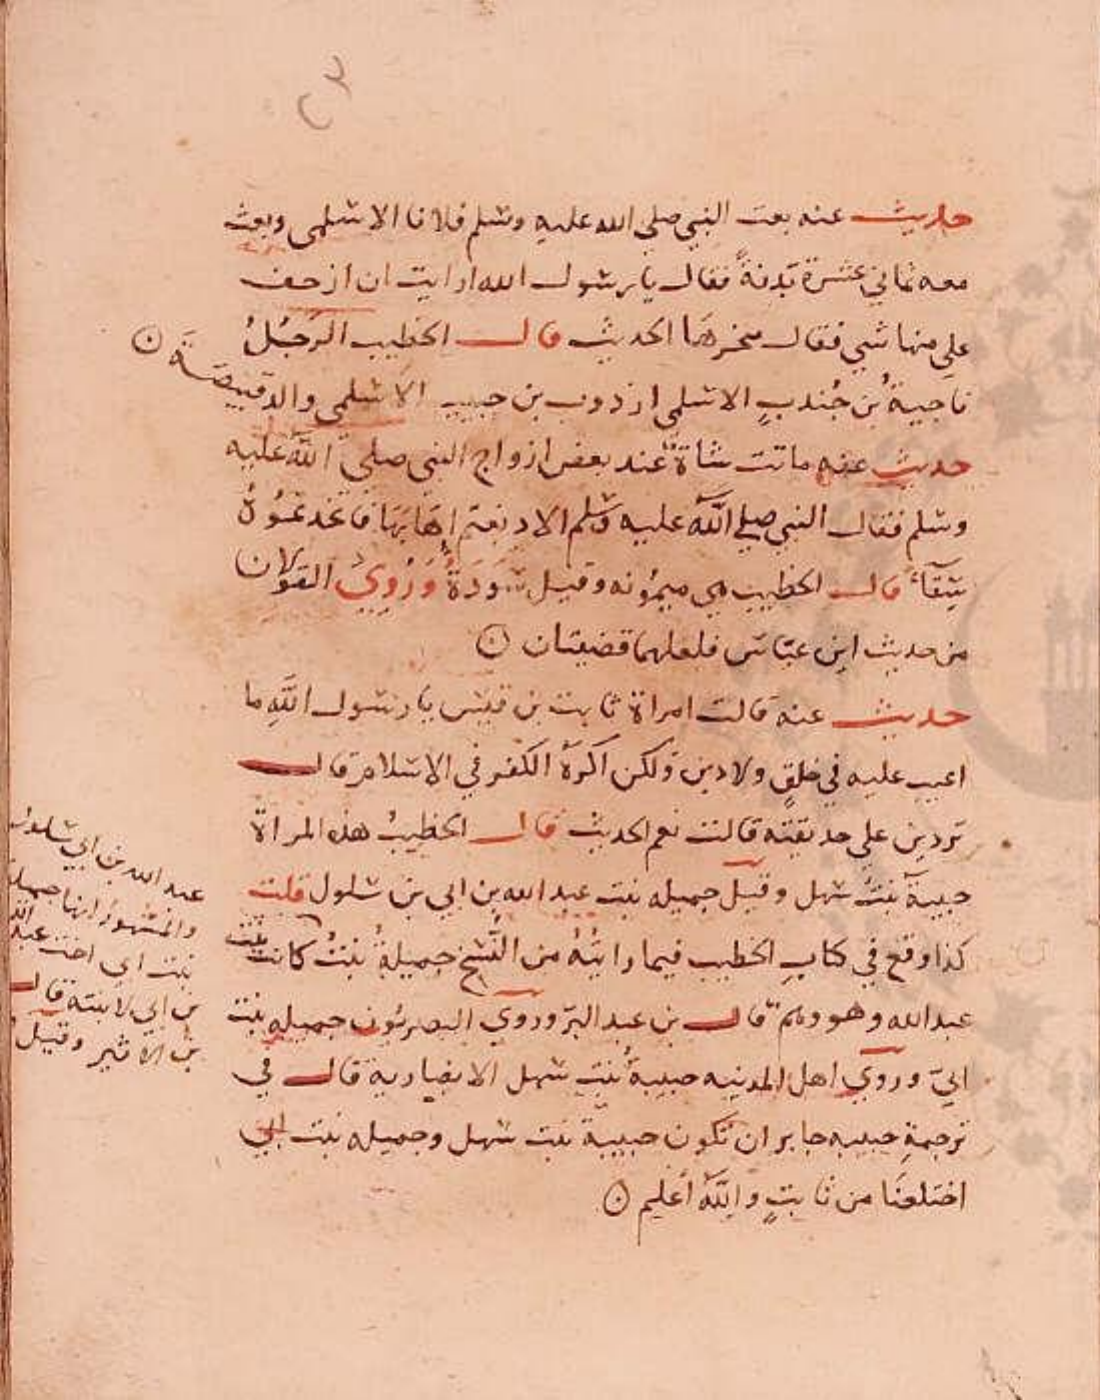 ٢٣
حديث عنه بعث النبي صلي الله عليه وسلم فلانا الاسلمي وبعث
معه ثماني عشرة بدنةً فقال يا رسول الله ارايت ان ازحف
علي منها شي فقال منحرها الحديث قال الخطيب الرجلُ
ناجيةُ بن جُندبٍ الاسلمي ا ذويب بن حبيب الاسلمي والد قبيصة ۞
حديث عنه ماتت شاة عند بعض ازواج النبي صلي اللّٰه عليه
وسلم فقال النبي صلي اللّٰه عليه وسلم الا دبغتم اهابها فاتخذتموهُ
سِقآءً قال الخطيب هي ميمونه وقيل سَوْدَةُ وَرُوِيَ القولان
من حديث ابن عبّاس فلعلهما قضيتان ۞
حديث عنه قالت امراة ثابت بن قيس يا رسول اللّٰه ما
اعيب عليه في خلقٍ ولا دين ولكن اكرهُ الكفر في الاسلام قال
تردين علي حديقته قالت نعم الحديث قال الخطيبُ هذه المراة
حبيبةُ بنتُ سهل وقيل جميله بنت عبد الله بن ابي بن سلول قلت
كذا وقع في كتاب الخطيب فيما رايتُهُ من النُّسَخ جميلةُ بنتُ كانت بنت
عبد الله وهو وهم قال بن عبد البرّ وروي البصريُون جميله بنت
ابيّ وروي اهل المدينه حبيبةُ بنت سهل الانصارية قال في
ترجمةِ حبيبه جابر ان تكون حبيبة بنت سهل وجميله بنت ابي
اختلعتَا من ثابتٍ واللّٰهُ اعلم ۞
عبد الله بن ابي سلول
والمشهور انها جميلة
بنت ابي اخت عبد الله
بن ابي لا ابنته قال
بن الاثير وقيل